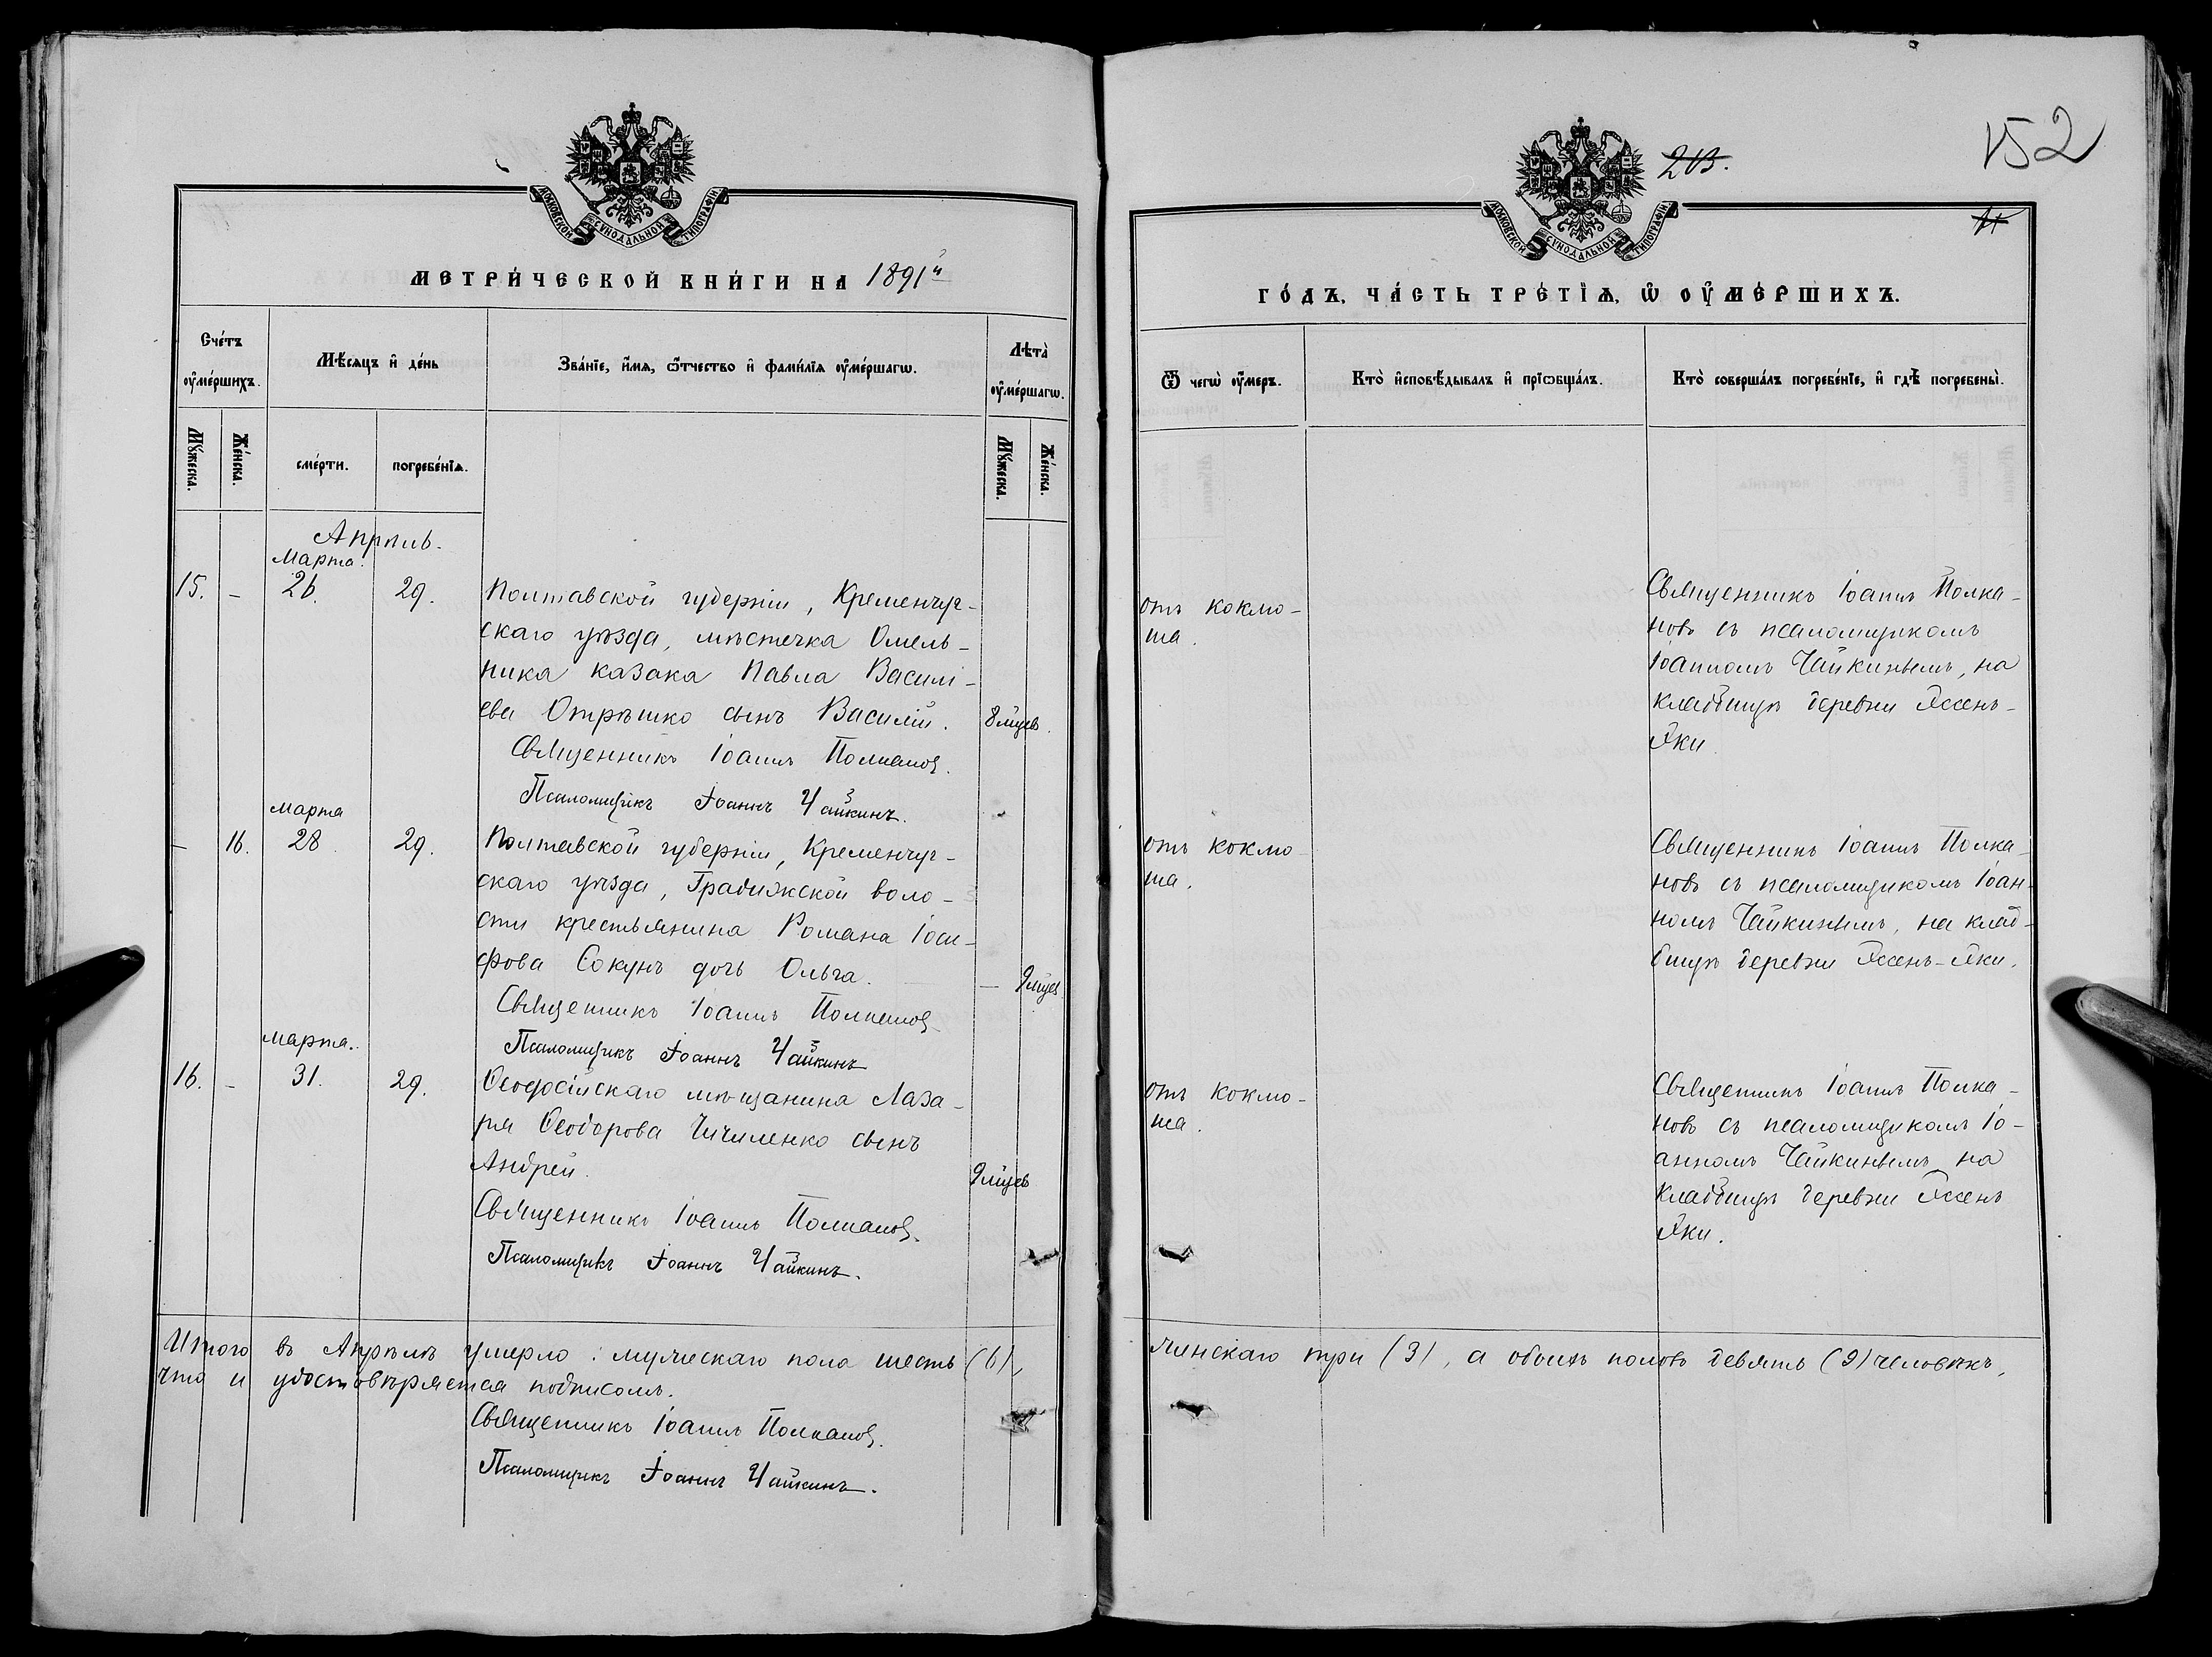 МОСКОВСКОЙ СѴНОДАЛЬНОЙ ТИПОГРАФІИ
МЕТРИ́ЧЕСКОЙ КНИ́ГИ НА 1891й
Сче́тъ ᲂу҆ме́ршихъ.
Мѣ́сяцъ и҆ де́нь
Зва́нїе, и҆́мѧ, ѻ҆́тчество и҆ фами́лїѧ ᲂу҆ме́ршагѡ.
Лѣта̀ ᲂу҆ме́ршагѡ.
Мꙋ́жеска.
Же́нска.
сме́рти.
погребе́нїѧ.
Мꙋ́жеска.
Же́нска.
Апрѣль.
Марта.
15. - 26. 29.
Полтавской губерніи, Кременчуг-
скаго уѣзда, мѣстечка Омель-
ника казака Павла Василі-
ева Отрѣшко сынъ Василій. 8 мцевъ.
Священникъ Іоаннъ Полкановъ.
Псаломщикъ Іоаннъ Чайкинъ.
марта
- 16. 28 29.
Полтавской губерніи, Кременчуг-
скаго уѣзда, Градижской воло-
сти крестьянина Романа Іоси-
фова Сокунъ дочь Ольга. - 9 мцев.
Священникъ Іоаннъ Полкановъ
Псаломщикъ Іоаннъ Чайкинъ
марта.
16. - 31. 29.
Ѳеодосійскаго мѣщанина Лаза-
ря Ѳеодорова Чичиленко сынъ
Андрей. 9 мцевъ
Священникъ Іоаннъ Полкановъ.
Псаломщикъ Іоаннъ Чайкинъ.
Итого въ Апрѣлѣ умерло: мужескаго пола шесть (6),
что и удостовѣряется подписомъ.
Священникъ Іоаннъ Полкановъ.
Псаломщикъ Іоаннъ Чайкинъ.
152
МОСКОВСКОЙ СѴНОДАЛЬНОЙ ТИПОГРАФІИ
ГО́ДЪ, ЧА́СТЬ ТРЕ́ТЇѦ, Ѡ҆ ОУ҆МЕ́РШИХЪ.
Ѿ чегѡ̀ ᲂу҆́меръ.
Кто̀ и҆сповѣ́дывалъ и҆ прїѡбща́лъ.
Кто̀ соверша́лъ погребе́нїе, и҆ гдѣ̀ погребены̀.
отъ коклю-
ша.
Священникъ Іоаннъ Полка-
новъ съ псаломщикомъ
Іоанномъ Чайкинымъ, на
кладбищѣ деревни Яссень-
Яки.
отъ коклю-
ша.
Священникъ Іоаннъ Полка-
новъ съ псаломщикомъ Іоан-
номъ Чайкинымъ, на клад-
бищѣ деревни Яссень-Яки.
отъ коклю-
ша.
Священникъ Іоаннъ Полка-
новъ съ псаломщикомъ Іо-
анномъ Чайкинымъ на
кладбищѣ деревни Яссень
Яки.
женскаго три (3), а обоихъ половъ девять (9) человѣкъ,